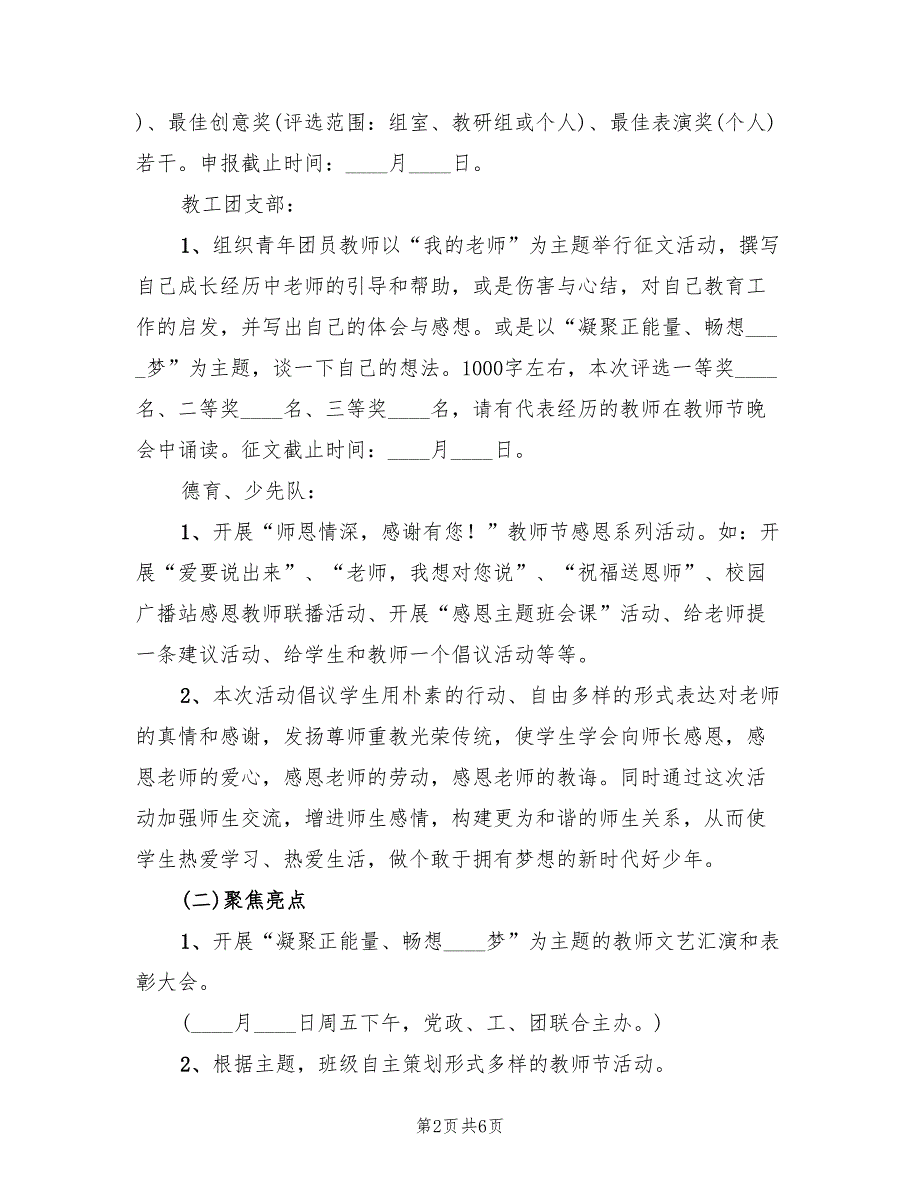 )、最佳创意奖(评选范围：组室、教研组或个人)、最佳表演奖(个人)
若干。申报截止时间：____月____日。
教工团支部：
1、组织青年团员教师以“我的老师”为主题举行征文活动，撰写
自己成长经历中老师的引导和帮助，或是伤害与心结，对自己教育工
作的启发，并写出自己的体会与感想。或是以“凝聚正能量、畅想___
_梦”为主题，谈一下自己的想法。1000字左右，本次评选一等奖____
名、二等奖____名、三等奖____名，请有代表经历的教师在教师节晚
会中诵读。征文截止时间：____月____日。
德育、少先队：
1、开展“师恩情深，感谢有您！”教师节感恩系列活动。如：开
展“爱要说出来”、“老师，我想对您说”、“祝福送恩师”、校园
广播站感恩教师联播活动、开展“感恩主题班会课”活动、给老师提
一条建议活动、给学生和教师一个倡议活动等等。
2、本次活动倡议学生用朴素的行动、自由多样的形式表达对老师
的真情和感谢，发扬尊师重教光荣传统，使学生学会向师长感恩，感
恩老师的爱心，感恩老师的劳动，感恩老师的教诲。同时通过这次活
动加强师生交流，增进师生感情，构建更为和谐的师生关系，从而使
学生热爱学习、热爱生活，做个敢于拥有梦想的新时代好少年。
(二)聚焦亮点
1、开展“凝聚正能量、畅想____梦”为主题的教师文艺汇演和表
彰大会。
(____月____日周五下午，党政、工、团联合主办。)
2、根据主题，班级自主策划形式多样的教师节活动。
第2页共6页